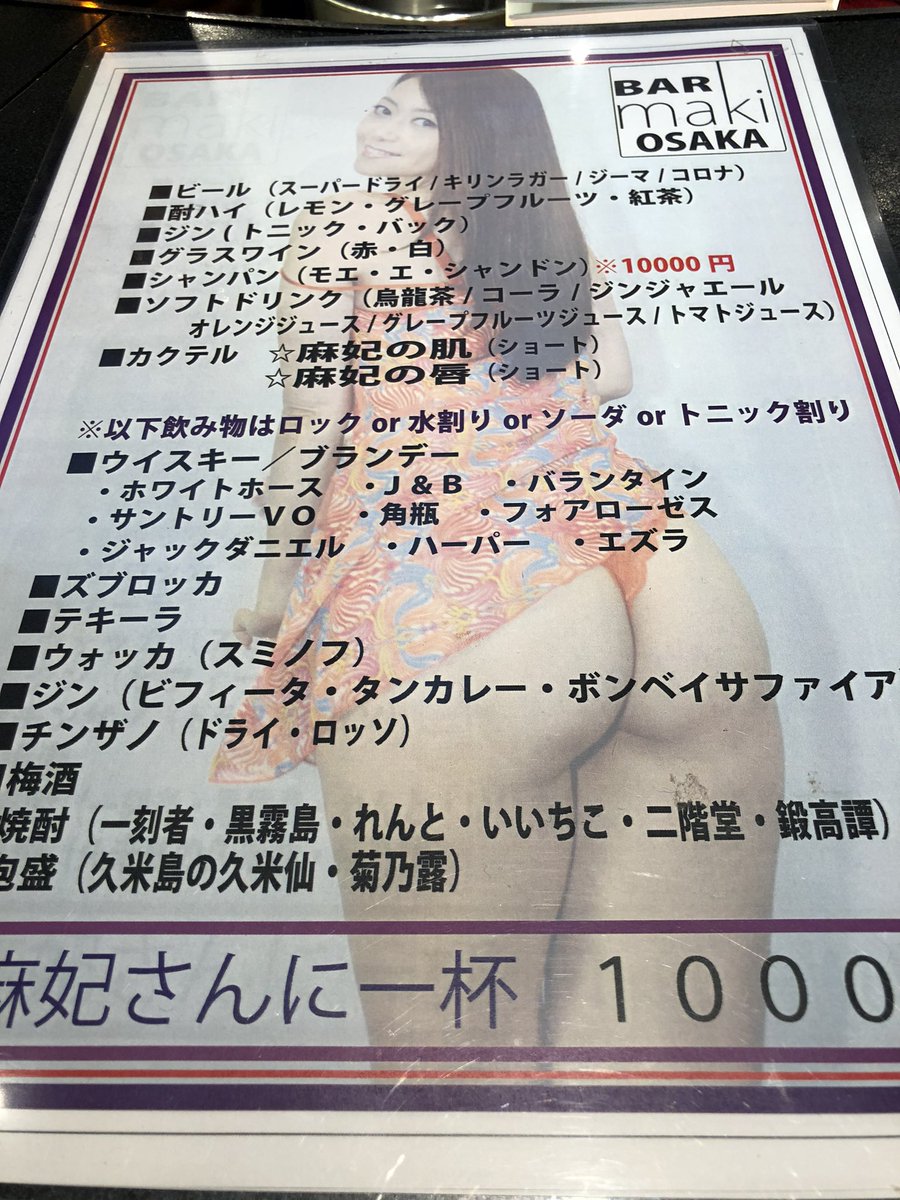 BAR
maki
OSAKA
■ビール（スーパードライ/キリンラガー/ジーマ/コロナ）
■酎ハイ（レモン・グレープフルーツ・紅茶）
■ジン(トニック・バック）
■グラスワイン（赤・白）
■シャンパン（モエ・エ・シャンドン）※10000円
■ソフトドリンク（烏龍茶/コーラ/ジンジャエール
オレンジジュース/グレープフルーツジュース/トマトジュース）
■カクテル　☆麻妃の肌（ショート）
☆麻妃の唇（ショート）
※以下飲み物はロック or 水割り or ソーダ or トニック割り
■ウイスキー／ブランデー
・ホワイトホース　・J＆B　・バランタイン
・サントリーVO　・角瓶　・フォアローゼス
・ジャックダニエル　・ハーパー　・エズラ
■ズブロッカ
■テキーラ
■ウォッカ（スミノフ）
■ジン（ビフィータ・タンカレー・ボンベイサファイア）
■チンザノ（ドライ・ロッソ）
■梅酒
焼酎（一刻者・黒霧島・れんと・いいちこ・二階堂・鍛高譚）
泡盛（久米島の久米仙・菊乃露）
麻妃さんに一杯　1000